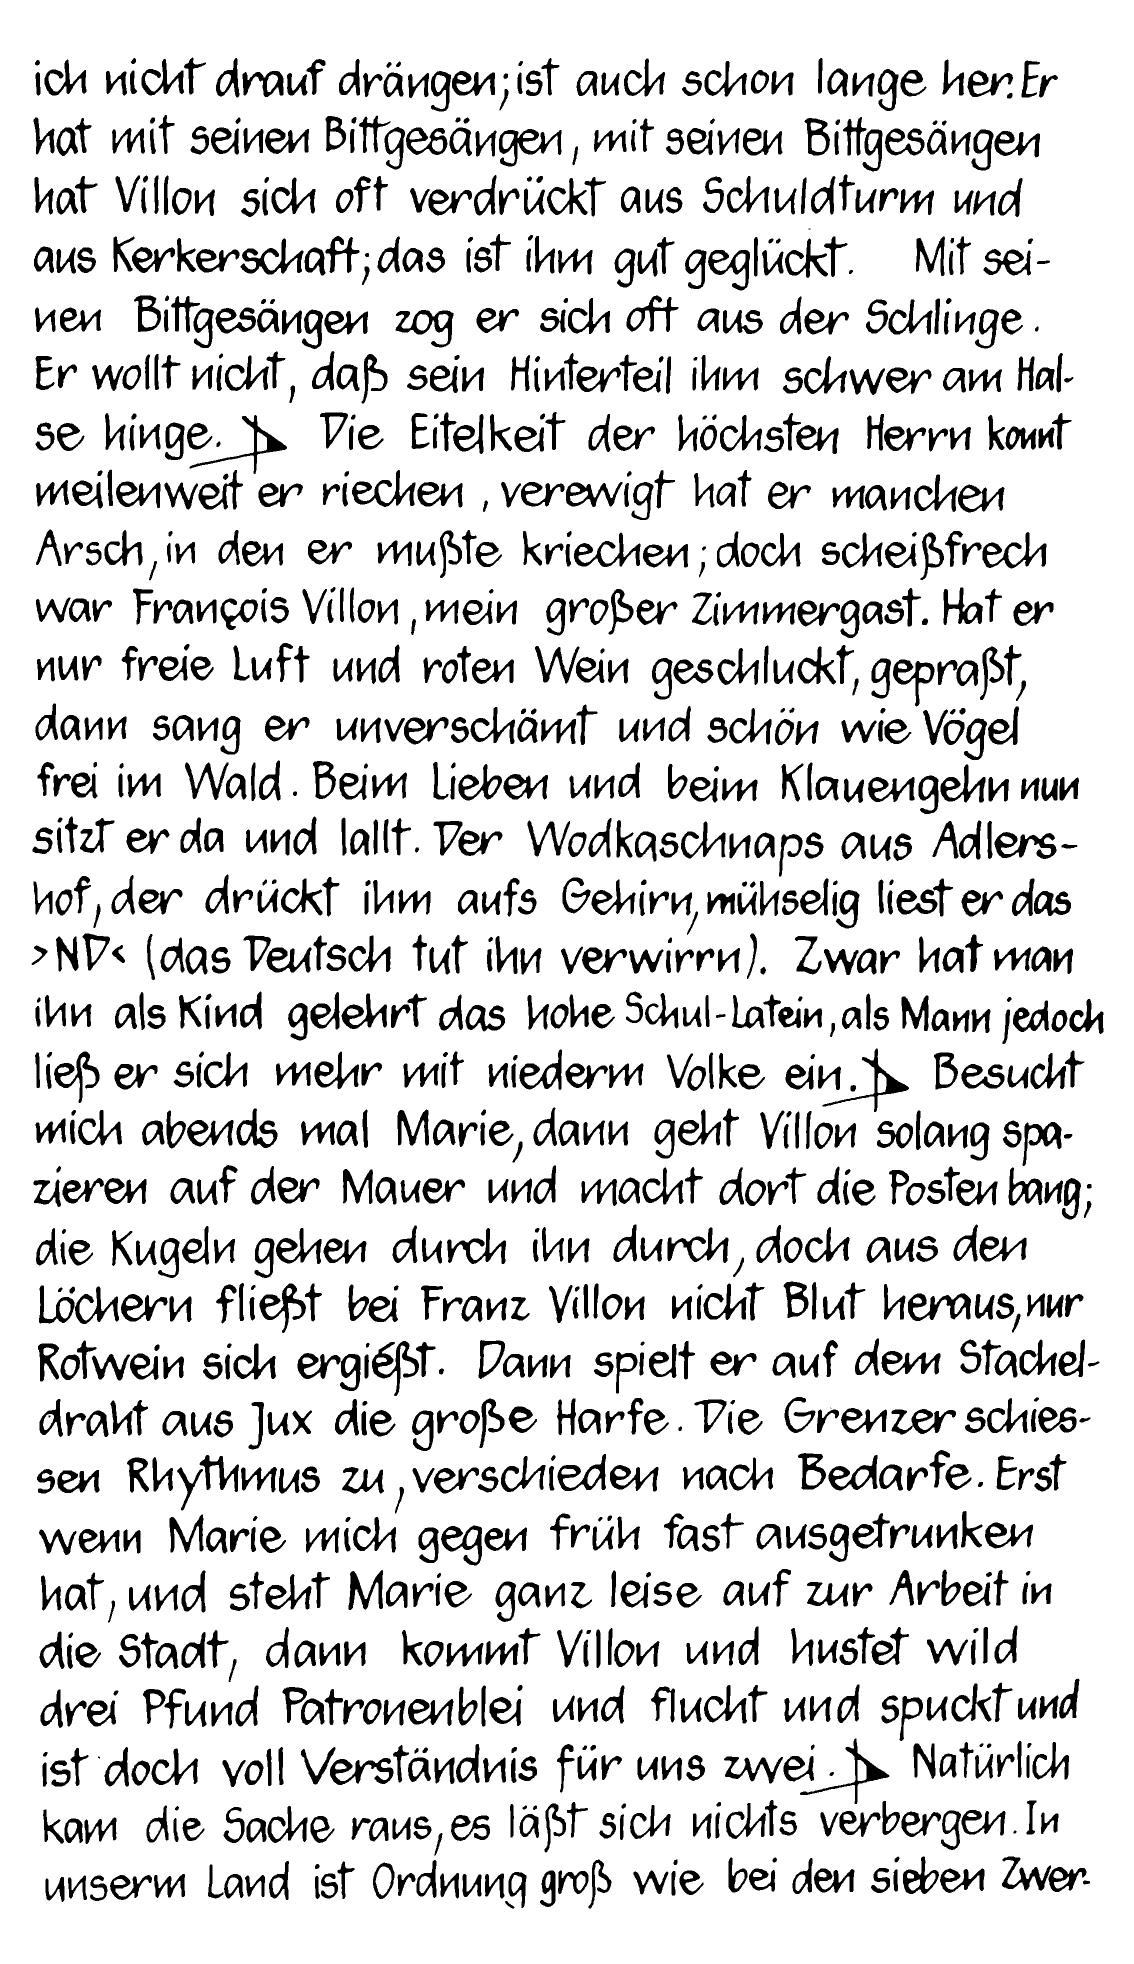 ich nicht drauf drängen; ist auch schon lange her. Er
hat mit seinen Bittgesängen, mit seinen Bittgesängen
hat Villon sich oft verdrückt aus Schuldturm und
aus Kerkerschaft; das ist ihm gut geglückt. Mit sei-
nen Bittgesängen zog er sich oft aus der Schlinge.
Er wollt nicht, daß sein Hinterteil ihm schwer am Hal-
se hinge. Die Eitelkeit der höchsten Herrn konnt
meilenweit er riechen, verewigt hat er manchen
Arsch, in den er mußte kriechen; doch scheißfrech
war François Villon, mein großer Zimmergast. Hat er
nur freie Luft und roten Wein geschluckt, gepraßt,
dann sang er unverschämt und schön wie Vögel
frei im Wald. Beim Lieben und beim Klauengehn nun
sitzt er da und lallt. Der Wodkaschnaps aus Adlers-
hof, der drückt ihm aufs Gehirn, mühselig liest er das
>ND< (das Deutsch tut ihn verwirrn). Zwar hat man
ihn als Kind gelehrt das hohe Schul-Latein, als Mann jedoch
ließ er sich mehr mit niederm Volke ein. Besucht
mich abends mal Marie, dann geht Villon solang spa-
zieren auf der Mauer und macht dort die Posten bang;
die Kugeln gehen durch ihn durch, doch aus den
Löchern fließt bei Franz Villon nicht Blut heraus, nur
Rotwein sich ergießt. Dann spielt er auf dem Stachel-
draht aus Jux die große Harfe. Die Grenzer schies-
sen Rhythmus zu, verschieden nach Bedarfe. Erst
wenn Marie mich gegen früh fast ausgetrunken
hat, und steht Marie ganz leise auf zur Arbeit in
die Stadt, dann kommt Villon und hustet wild
drei Pfund Patronenblei und flucht und spuckt und
ist doch voll Verständnis für uns zwei. Natürlich
kam die Sache raus, es läßt sich nichts verbergen. In
unserm Land ist Ordnung groß wie bei den sieben Zwer-